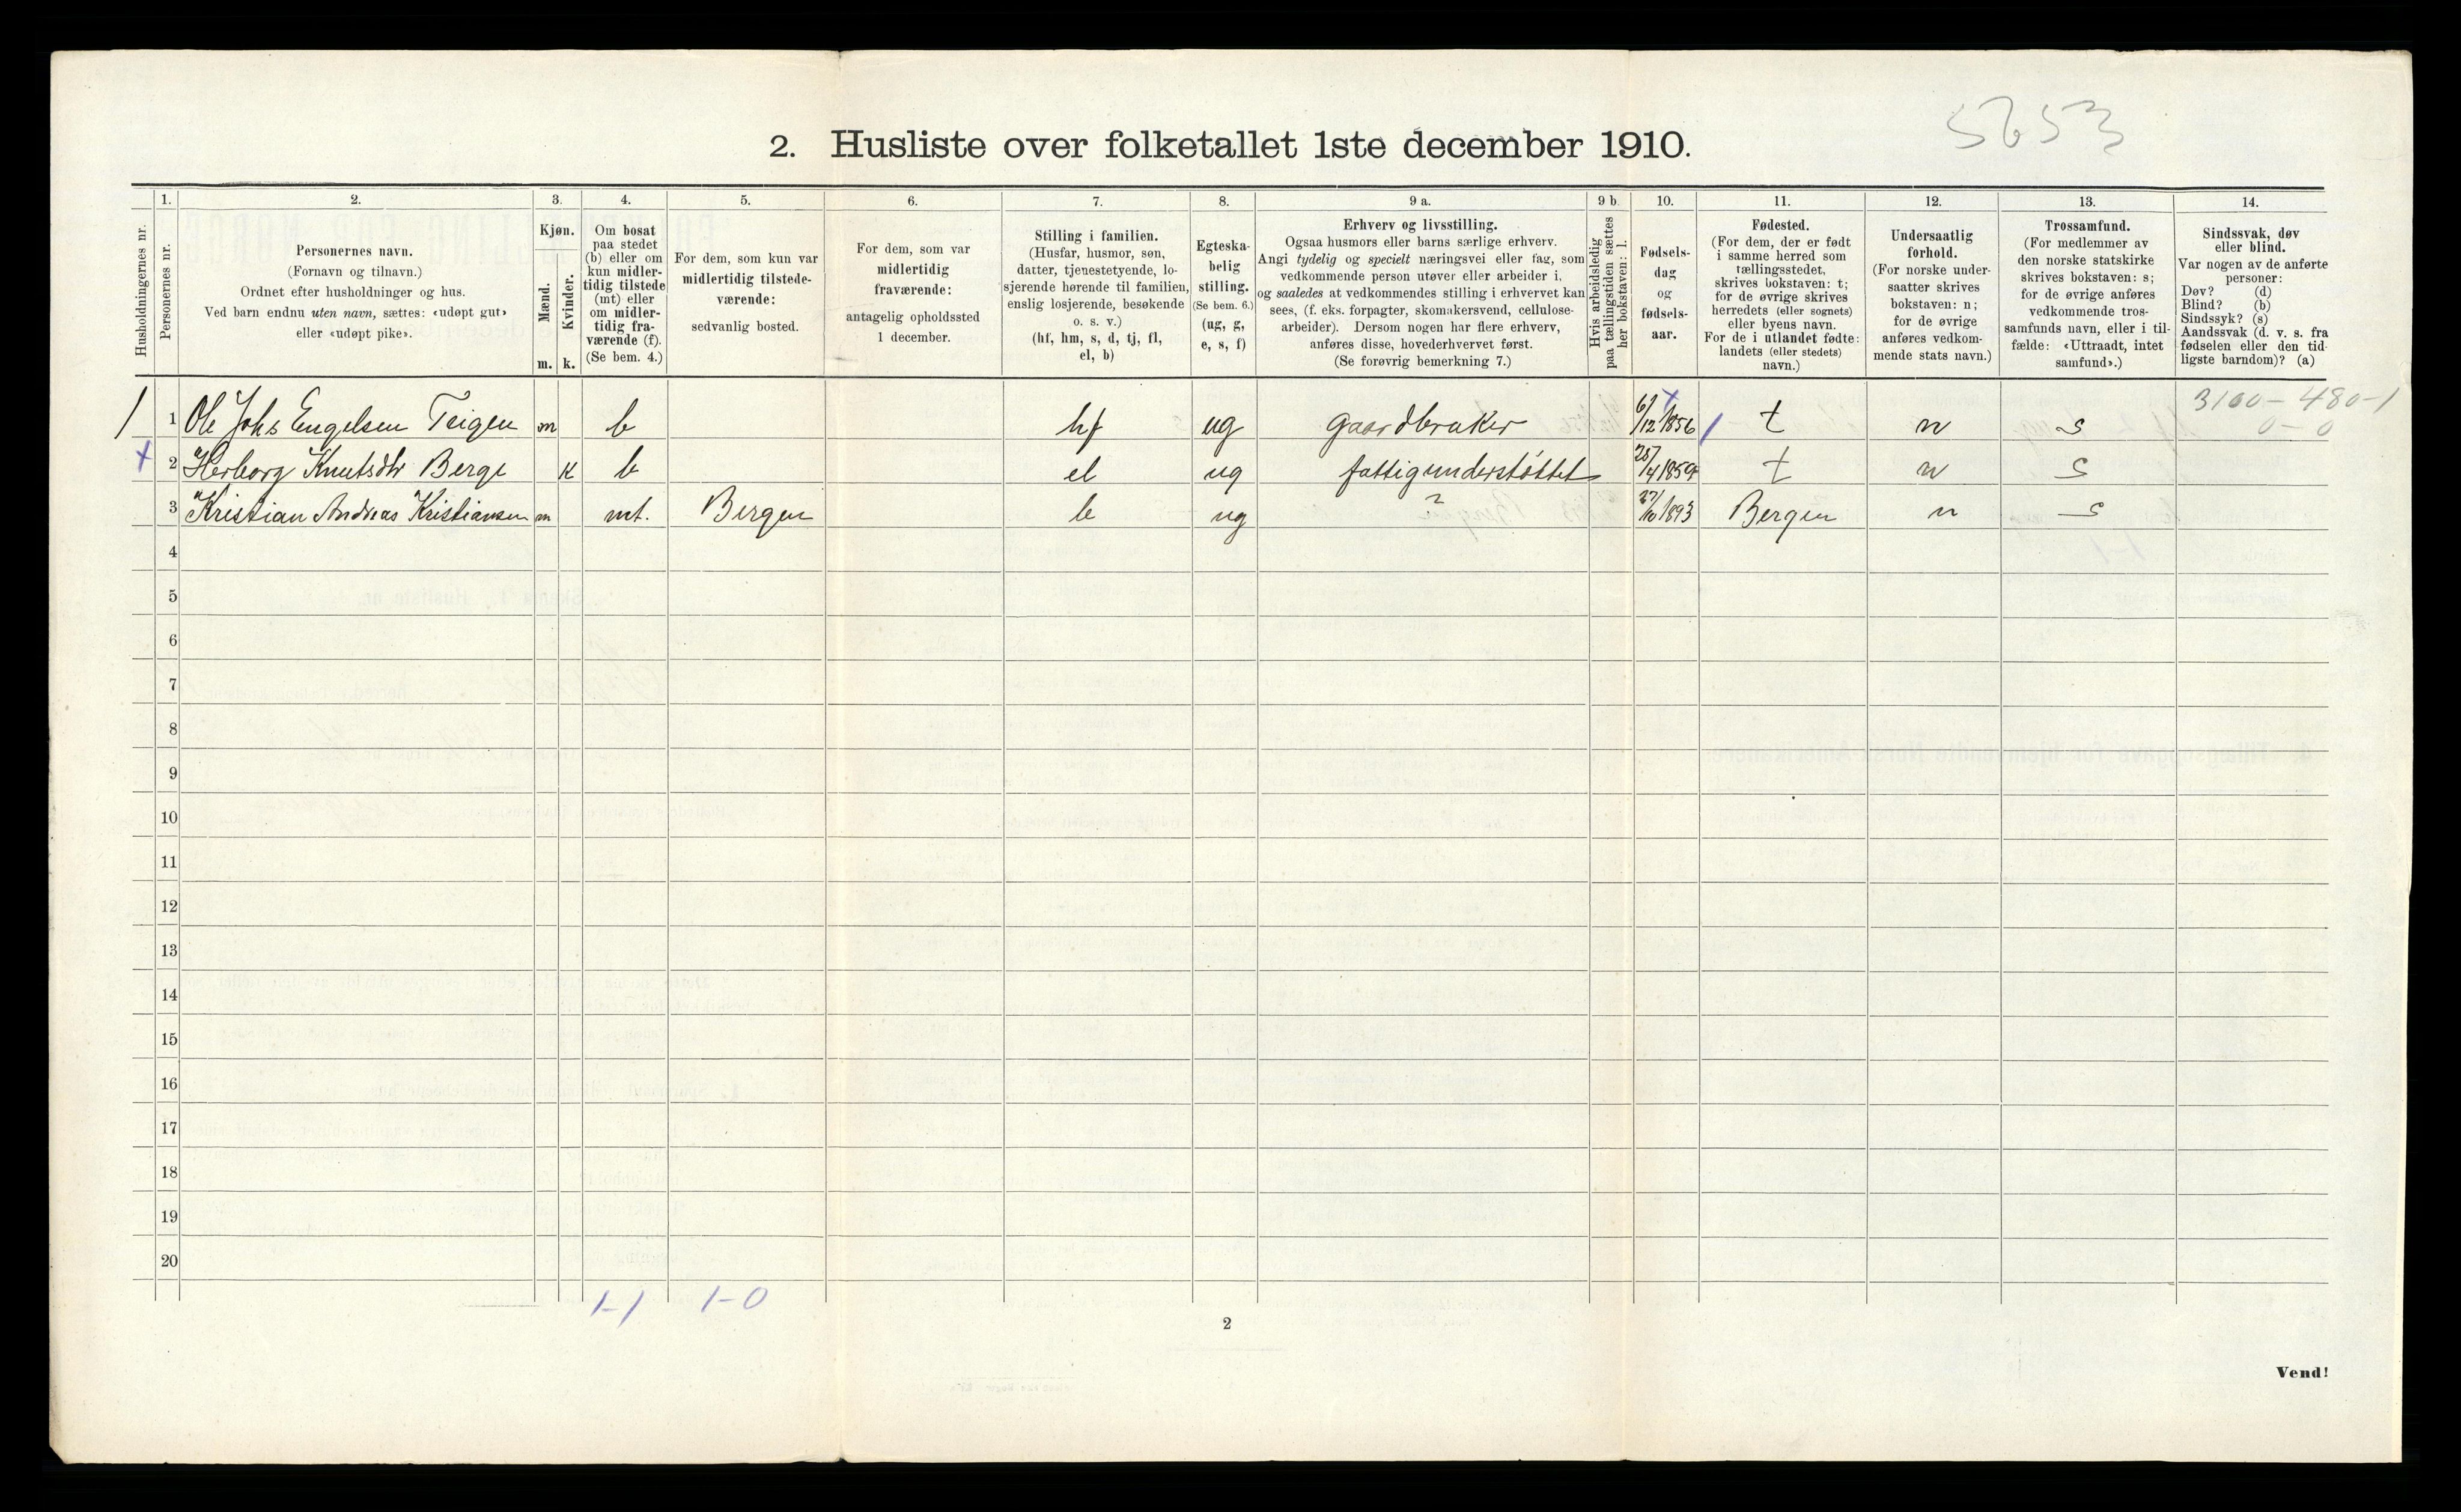 5653
2. Husliste over folketallet 1ste december 1910.
Husholdningernes nr.
1.
Personernes nr.
2.
Personernes navn.
(Fornavn og tilnavn.)
Ordnet efter husholdninger og hus.
Ved barn endnu uten navn, sættes: «udøpt gut»
eller «udøpt pike».
3.
Kjøn.
Mænd.
Kvinder.
m.
k.
4.
Om bosat
paa stedet
(b) eller om
kun midler-
tidig tilstede
(mt) eller
om midler-
tidig fra-
værende (f).
(Se bem. 4.)
5.
For dem, som kun var
midlertidig tilstede-
værende:
sedvanlig bosted.
6.
For dem, som var
midlertidig
fraværende:
antagelig opholdssted
1 december.
7.
Stilling i familien.
(Husfar, husmor, søn,
datter, tjenestetyende, lo-
sjerende hørende til familien,
enslig losjerende, besøkende
o. s. v.)
(hf, hm, s, d, tj, fl,
el, b)
8.
Egteska-
belig
stilling.
(Se bem. 6.)
(ug, g,
e, s, f)
9 a.
Erhverv og livsstilling.
Ogsaa husmors eller barns særlige erhverv.
Angi tydelig og specielt næringsvei eller fag, som
vedkommende person utøver eller arbeider i,
og saaledes at vedkommendes stilling i erhvervet kan
sees, (f. eks. forpagter, skomakersvend, cellulose-
arbeider). Dersom nogen har flere erhverv,
anføres disse, hovederhvervet først.
(Se forøvrig bemerkning 7.)
9 b.
Hvis arbeidsledig
paa tællingstiden sættes
her bokstaven: l.
10.
Fødsels-
dag
og
fødsels-
aar.
11.
Fødested.
(For dem, der er født
i samme herred som
tællingsstedet,
skrives bokstaven: t;
for de øvrige skrives
herredets (eller sognets)
eller byens navn.
For de i utlandet fødte:
landets (eller stedets)
navn.)
12.
Undersaatlig
forhold.
(For norske under-
saatter skrives
bokstaven: n;
for de øvrige
anføres vedkom-
mende stats navn.)
13.
Trossamfund.
(For medlemmer av
den norske statskirke
skrives bokstaven: s;
for de øvrige anføres
vedkommende tros-
samfunds navn, eller i til-
fælde: «Uttraadt, intet
samfund».)
14.
Sindssvak, døv
eller blind.
Var nogen av de anførte
personer:
Døv? (d)
Blind? (b)
Sindssyk? (s)
Aandssvak (d. v. s. fra
fødselen eller den tid-
ligste barndom)? (a)
3100 – 480 – 1
0 – 0
1 1 Ole Johs Engelsen Teigen m b hf ug gaardbruker 6/12 1856 t n s
x 2 Herborg Knutsdtr Berge k b el ug fattigunderstøttet 28/4 1859 t n s
3 Kristian Andreas Kristiansen m mt. Bergen b ug ? 27/10 1893 Bergen n s
4
5
6
7
8
9
10
11
12
13
14
15
16
17
18
19
20
1–1 1–0
2
Vend!